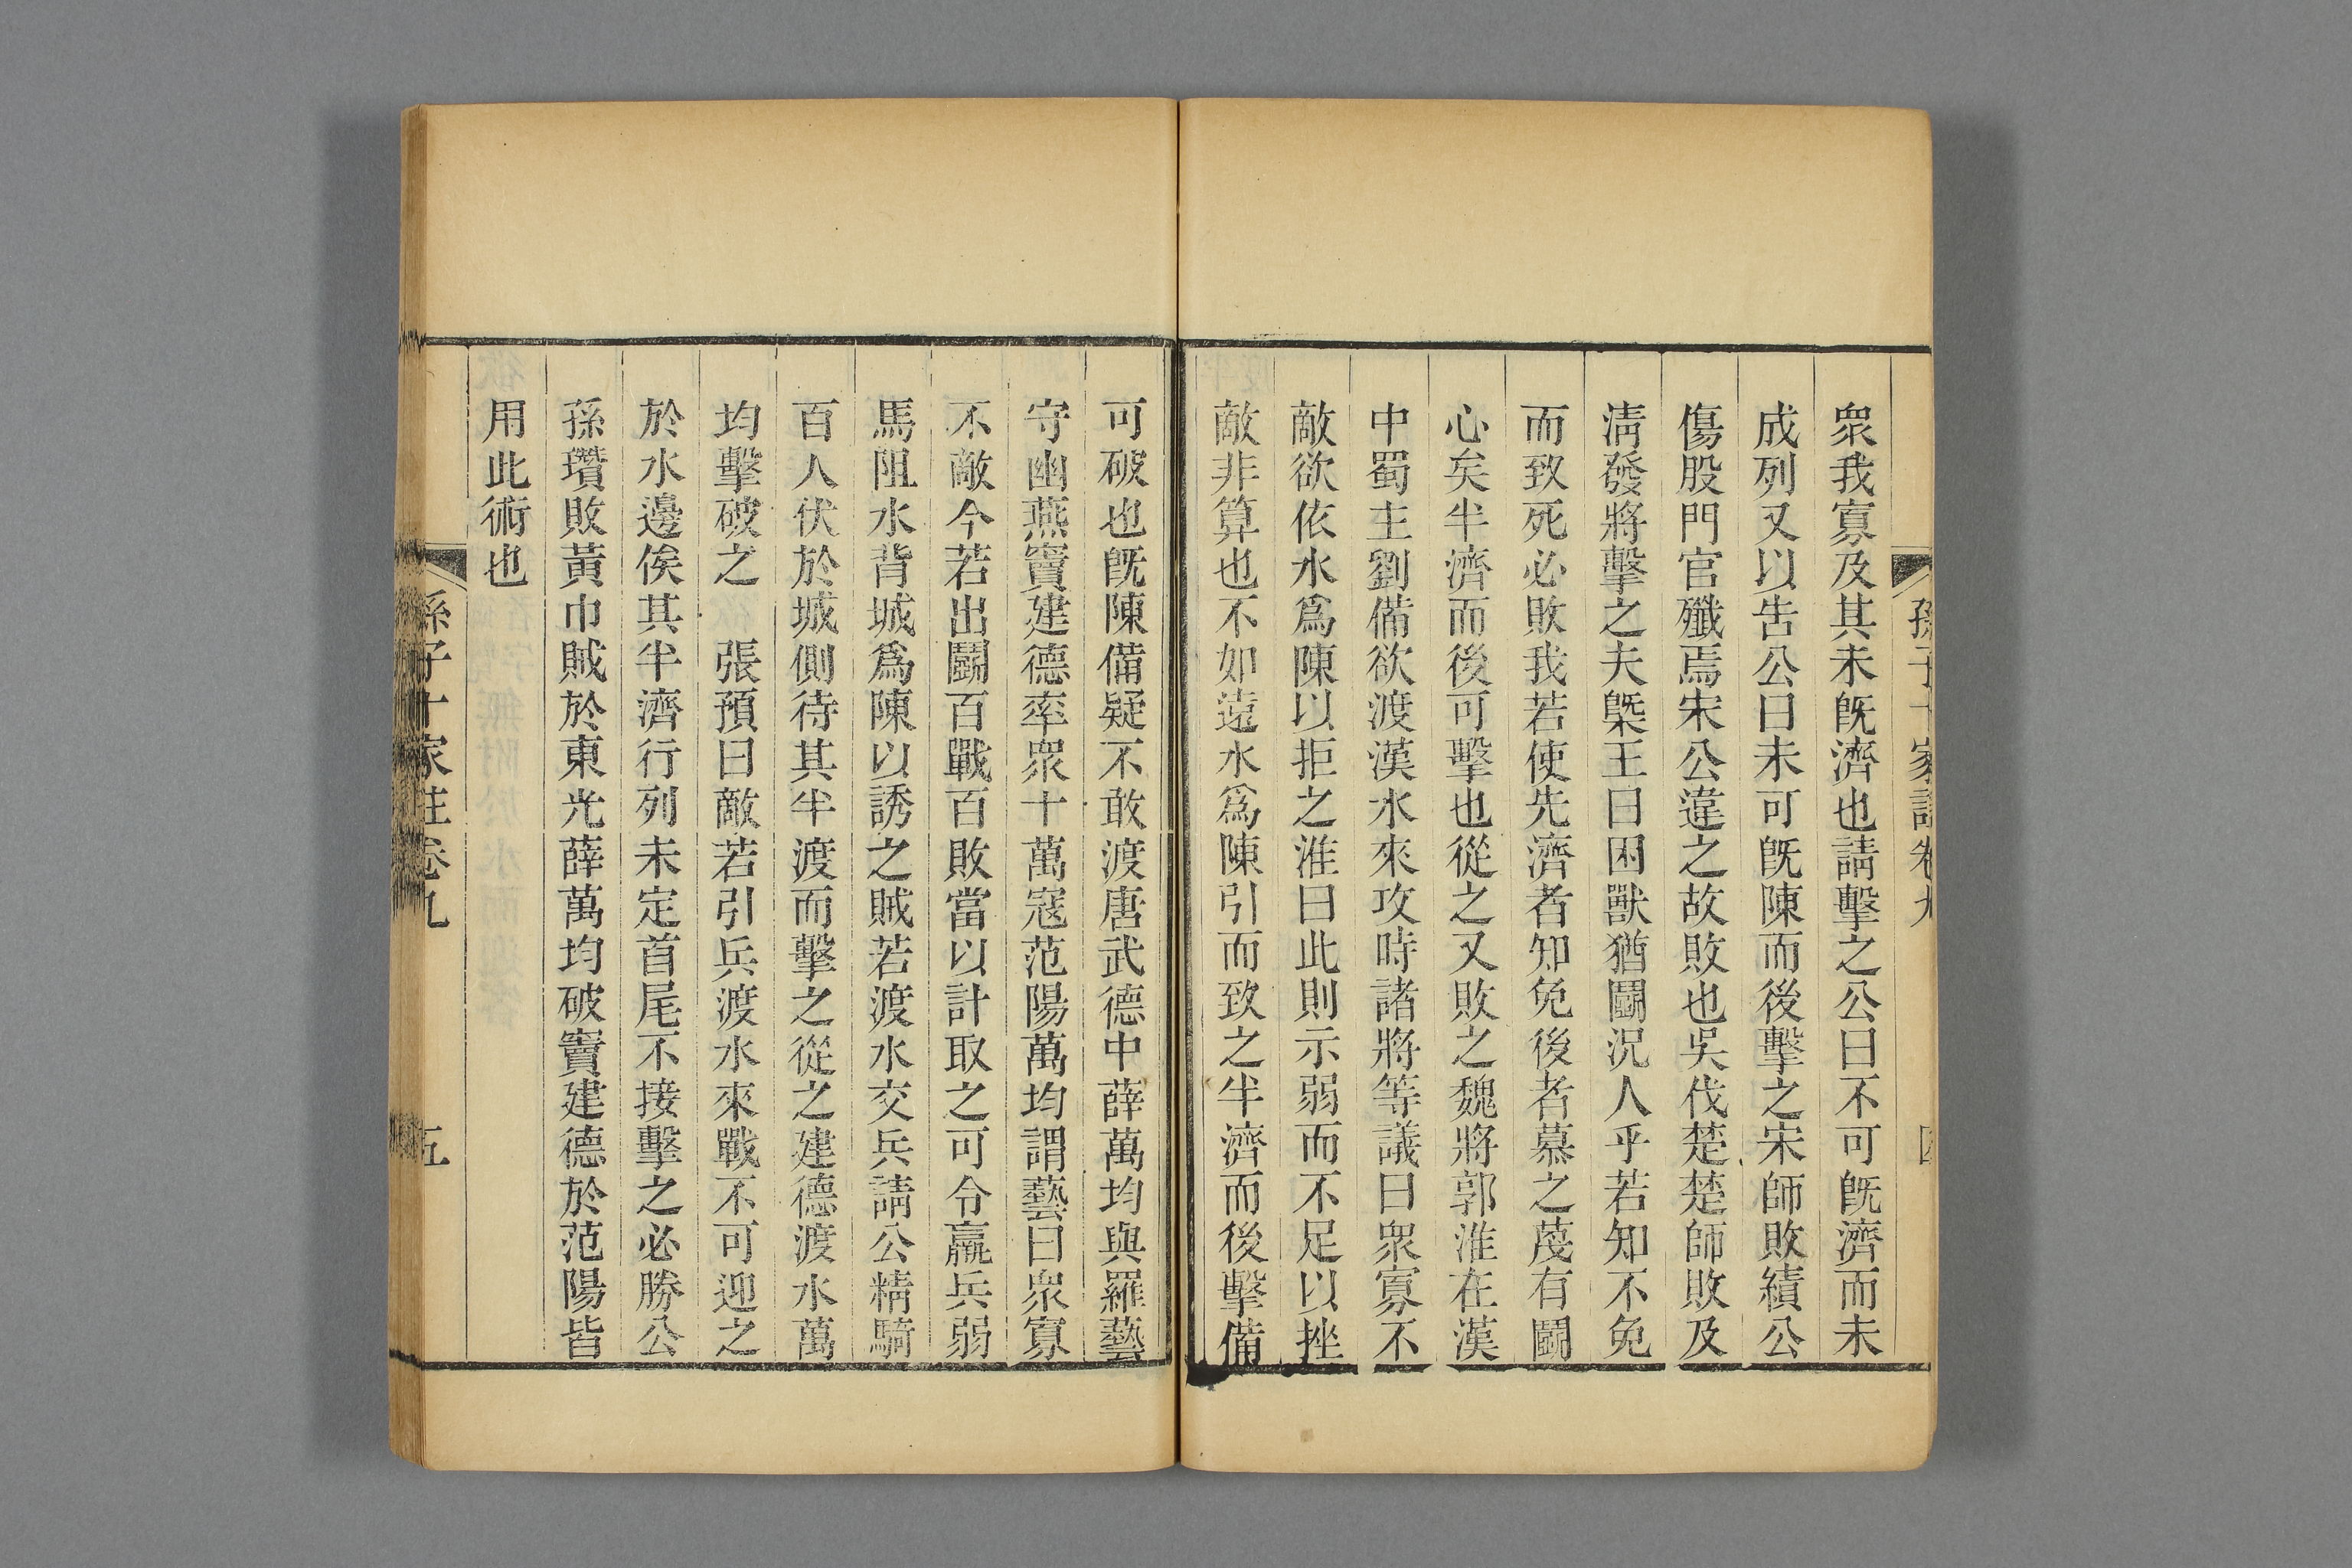 孫子十家註卷九
衆我寡及其未旣濟也請擊之公曰不可旣濟而未
成列又以告公曰未可旣陳而後擊之宋師敗績公
傷股門官殲焉宋公違之故敗也吳伐楚楚師敗及
淸發將擊之夫槩王曰困獸猶鬭況人乎若知不免
而致死必敗我若使先濟者知免後者慕之蔑有鬭
心矣半濟而後可擊也從之又敗之魏將郭淮在漢
中蜀主劉備欲渡漢水來攻時諸將等議曰衆寡不
敵欲依水爲陳以拒之淮曰此則示弱而不足以挫
敵非算也不如遠水爲陳引而致之半濟而後擊備
可破也旣陳備疑不敢渡唐武德中薛萬均與羅藝
守幽燕竇建德率衆十萬寇范陽萬均謂藝曰衆寡
不敵今若出鬭百戰百敗當以計取之可令羸兵弱
馬阻水背城爲陳以誘之賊若渡水交兵請公精騎
百人伏於城側待其半渡而擊之從之建德渡水萬
均擊破之 張預曰敵若引兵渡水來戰不可迎之
於水邊俟其半濟行列未定首尾不接擊之必勝公
孫瓚敗黃巾賊於東光薛萬均破竇建德於范陽皆
用此術也
孫子十家註卷九 五